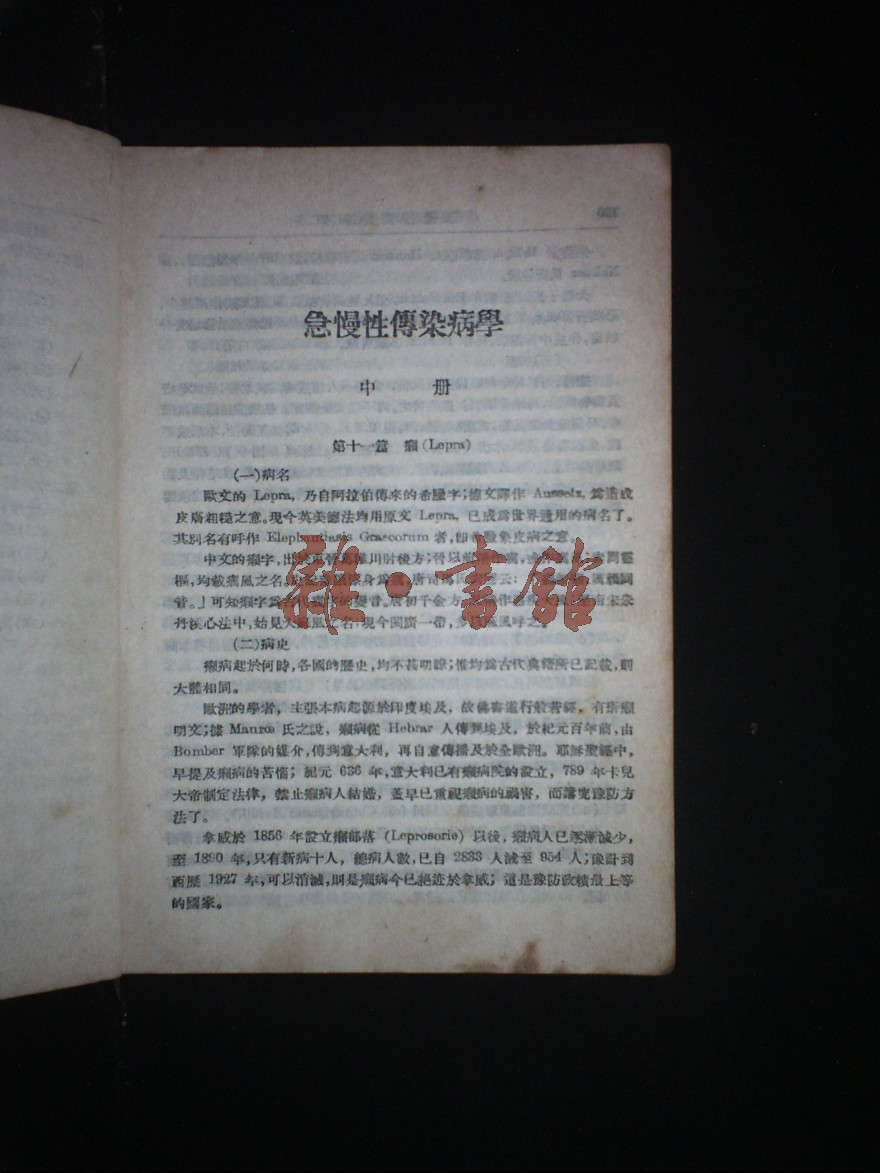 急慢性傳染病學
中 册
第十一篇 癩 (Lepra)
(一)病名
歐文的 Lepra, 乃自阿拉伯傳來的希臘字;德文譯作 Aussatz, 爲造成
皮膚粗糙之意。現今英美德法均用原文 Lepra, 已成爲世界通用的病名了。
其別名有呼作 Elephantiasis Graecorum 者,卽希臘象皮病之意。
中文的癩字,出於
均載癘風之名。
音。」可知癩字爲古代癘字的變音。唐初千金方
丹溪心法中,始見大麻風之名;現今閩廣一帶,
(二)病史
癩病起於何時,各國的歷史,均不甚明瞭;惟均爲古代典籍所已記載,則
大體相同。
歐洲的學者, 主張本病起源於印度埃及, 故佛書道行般若經, 有搭癩
明文;據 Mauros 氏之說, 癩病從 Hebrar 人傳到埃及, 於紀元百年前,由
Bomber 軍隊的媒介,傳到意大利, 再自意傳播及於全歐洲。耶穌聖經中,
早提及癩病的苦惱; 紀元 636 年,意大利已有癩病院的設立, 789 年卡兒
大帝制定法律, 禁止癩病人結婚, 蓋早已重視癩病的禍害, 而講究豫防方
法了。
拿威於 1856 年設立癩部落 (Leprosorie) 以後, 癩病人已逐漸減少,
至 1890 年,只有新病十人, 總病人數,已自 2833 人減至 954 人;豫計到
西歷 1927 年,可以消滅,則是癩病今已絕迹於拿威; 這是豫防政績最上等
的國家。
雜·書館